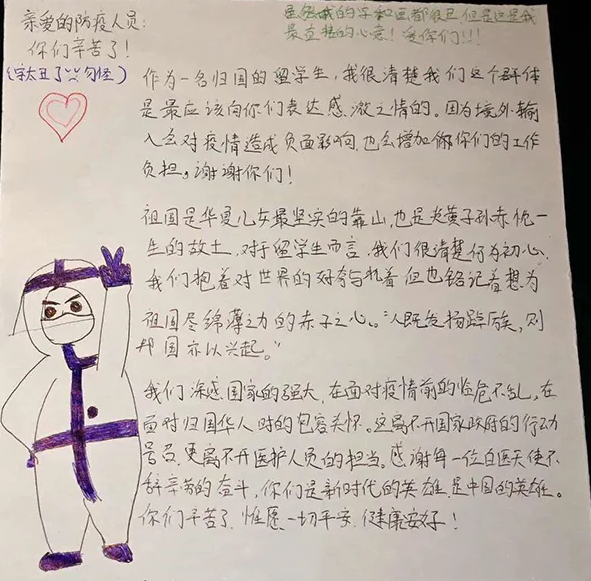 亲爱的防疫人员：
你们辛苦了！
（字太丑了 勿怪）
虽然我的字和画都很丑 但是这是我
最真挚的心意！爱你们!!!
作为一名归国的留学生，我很清楚我们这个群体
是最应该向你们表达感激之情的。因为境外输
入会对疫情造成负面影响，也会增加你们的工作
负担。谢谢你们！
祖国是华夏儿女最坚实的靠山，也是炎黄子孙赤忱一
生的故土，对于留学生而言，我们很清楚何为初心，
我们抱着对世界的好奇与执着 但也铭记着想为
祖国尽绵薄之力的赤子之心。“人既发扬踔厉矣，则
邦国亦以兴起。”
我们深感国家的强大，在面对疫情前的临危不乱，在
面对归国华人时的包容关怀。这离不开国家政府的行动
号召，更离不开医护人员的担当。感谢每一位白衣天使不
辞辛劳的奋斗，你们是新时代的英雄，是中国的英雄。
你们辛苦了，惟愿一切平安，健康安好！